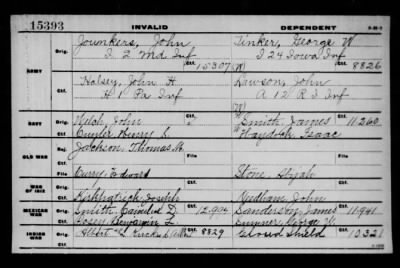 15393 INVALID DEPENDENT
Younkers, John Tinker, George W
Orig. I 2 Md Inf I 24 Iowa Inf
Ctf. 15307 Ctf. 8826
ARMY
Halsey, John H Lawson, John
Orig. H 1 Pa Inf A 12 R I Inf
Ctf.
NAVY Orig. Welch, John Ctf. Smith, James Ctf. 11260
Cuyler Henry C Haydock, Isaac
OLD WAR Rej. Jackson, Thomas W. File File
Orig. Curry, Edward Stone, Elijah
WAR OF 1812
Kirkpatrick, Joseph Needham, John
MEXICAN WAR Orig. Smith, Camilus D. Ctf. 12906 Sanderson, James Ctf. 11941
Posey, Benjamin L. Sumner, George W.
INDIAN WAR Orig. Albert C. Ctf. 8829 Shield Ctf. 10321